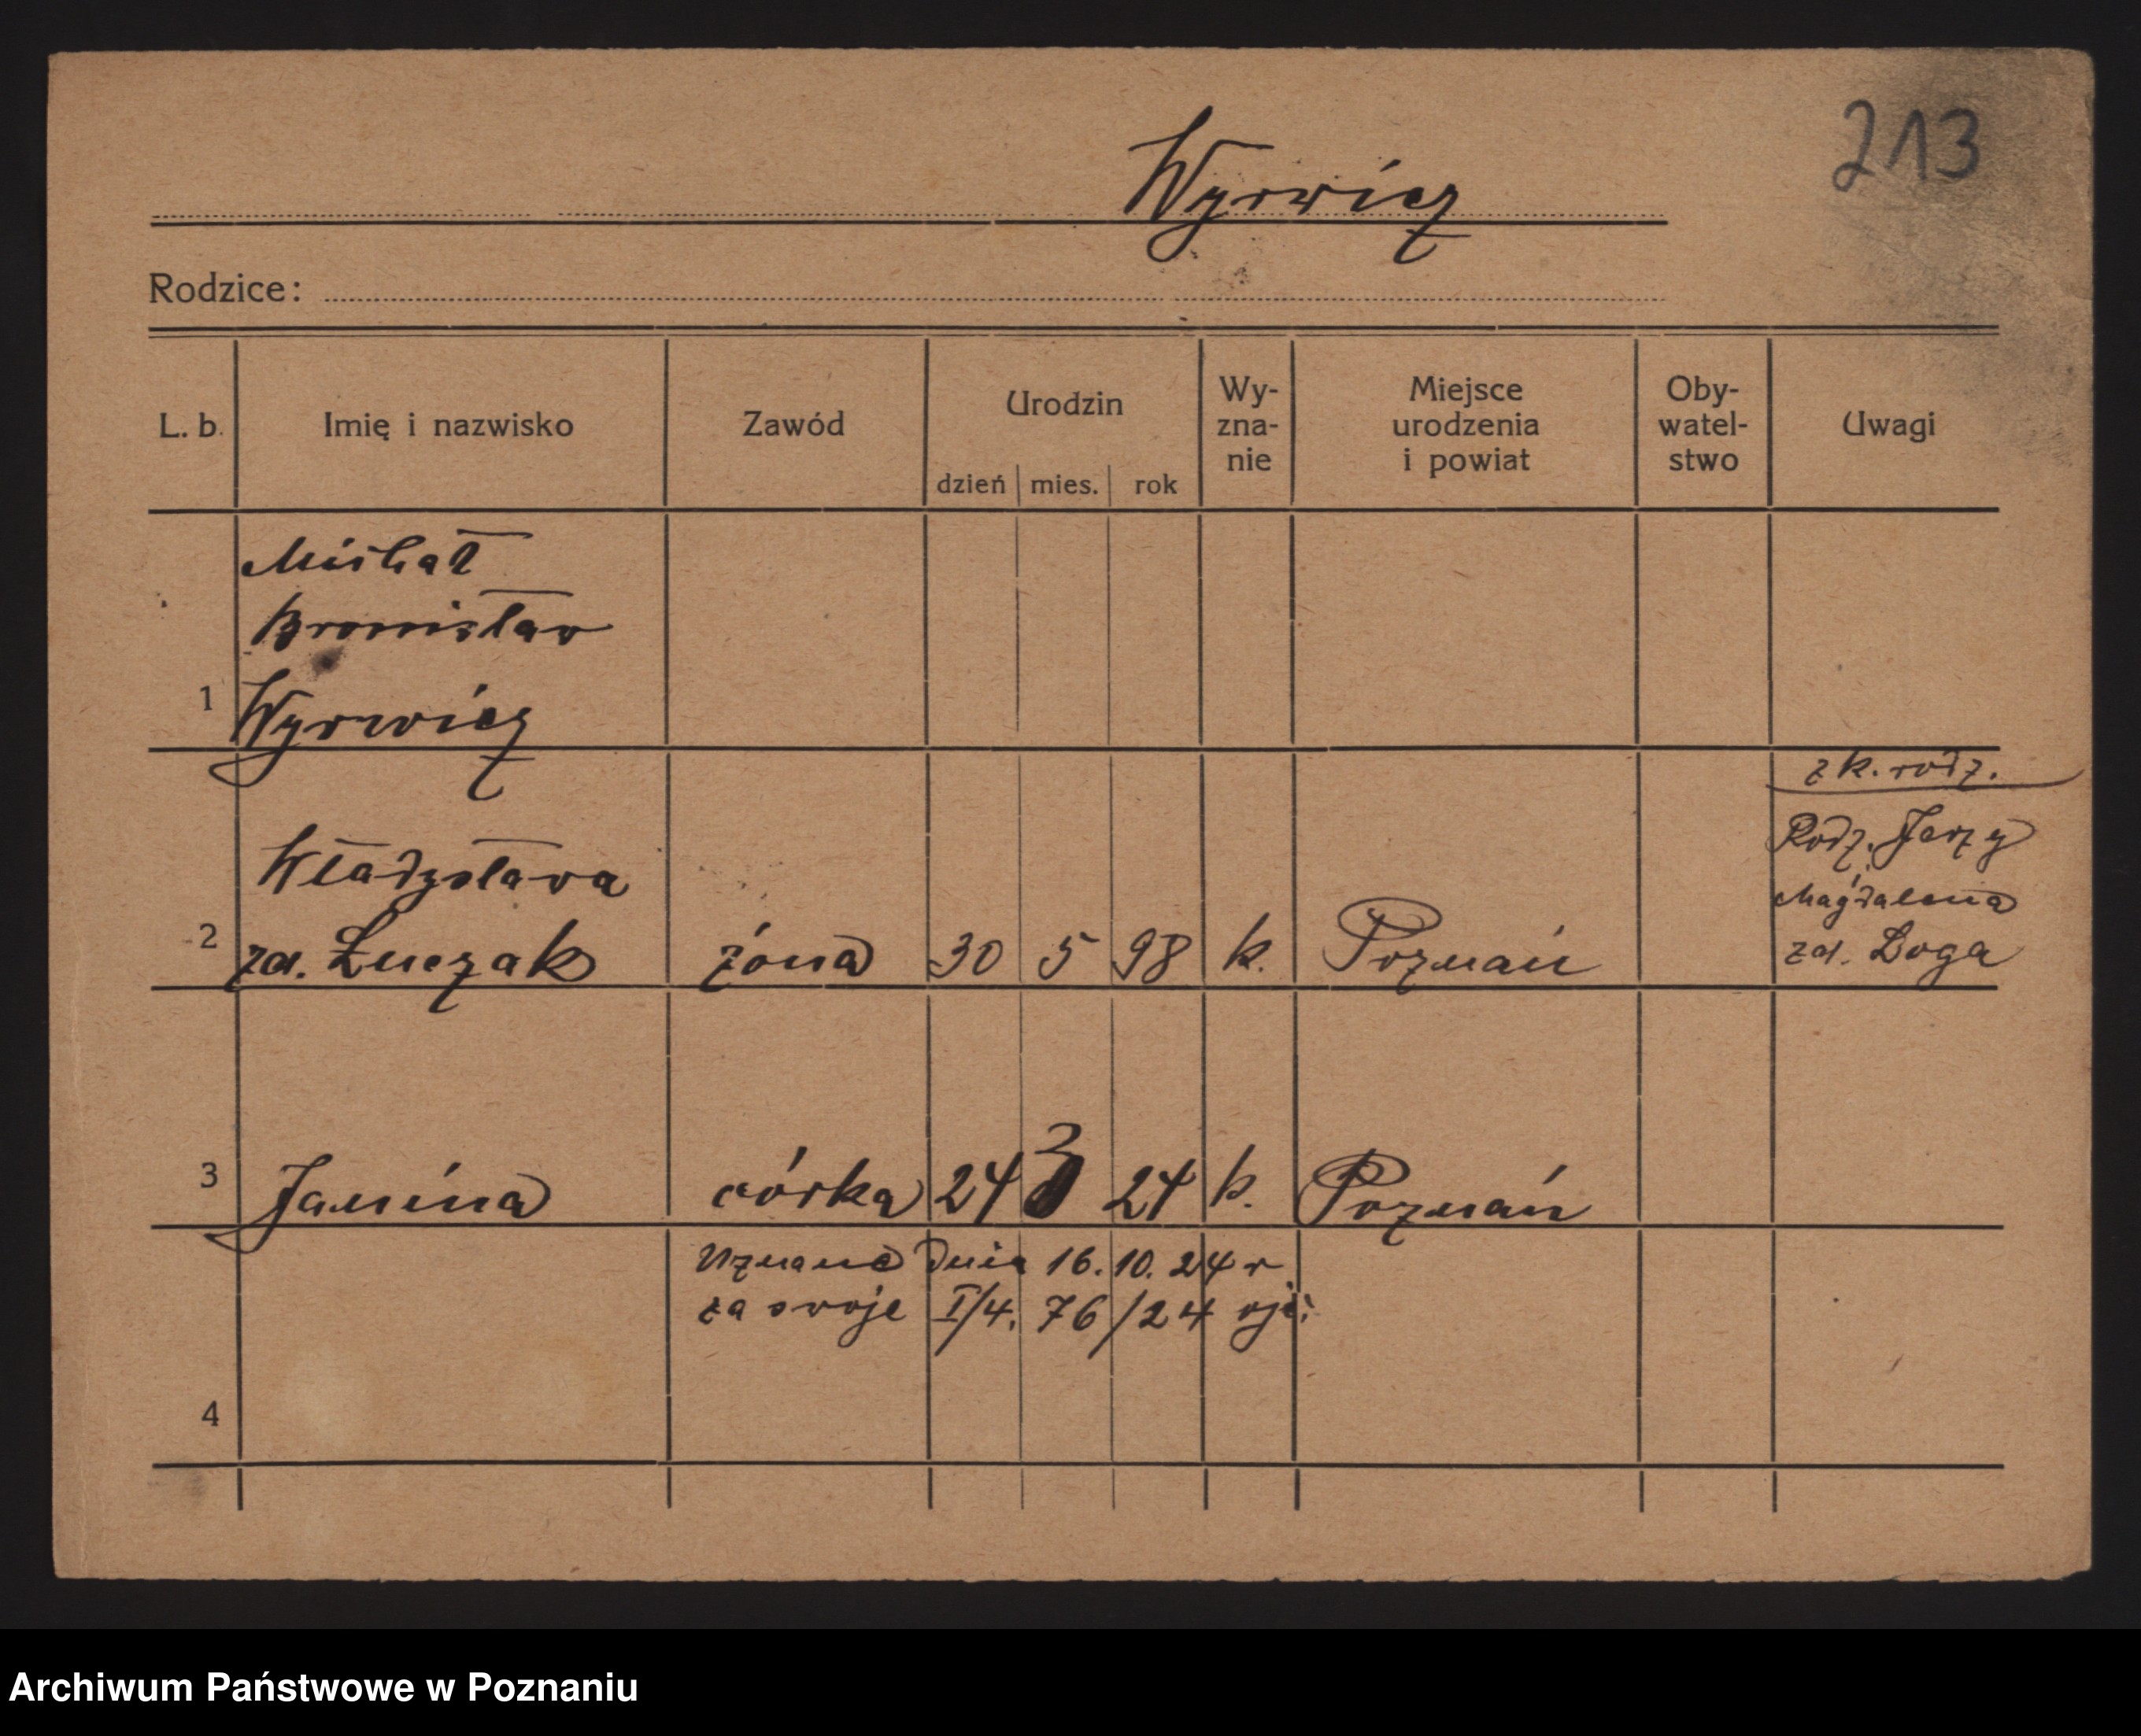 213
Wyrwicz
Rodzice:
L. b. Imię i nazwisko Zawód Urodzin dzień mies. rok Wy-zna-nie Miejsce urodzenia i powiat Oby-watel-stwo Uwagi
Michał
Bronisław
1 Wyrwicz
z k. rodz.
Rodz. Jerzy
Władysława
Magdalena
2 zd. Łuczak żona 30 5 98 k. Poznań
zd. Doga
3 Janina córka 24 3 24 k. Poznań
Uznane dnia 16. 10. 24 r
za swoje I/4. 76/24
4
Archiwum Państwowe w Poznaniu